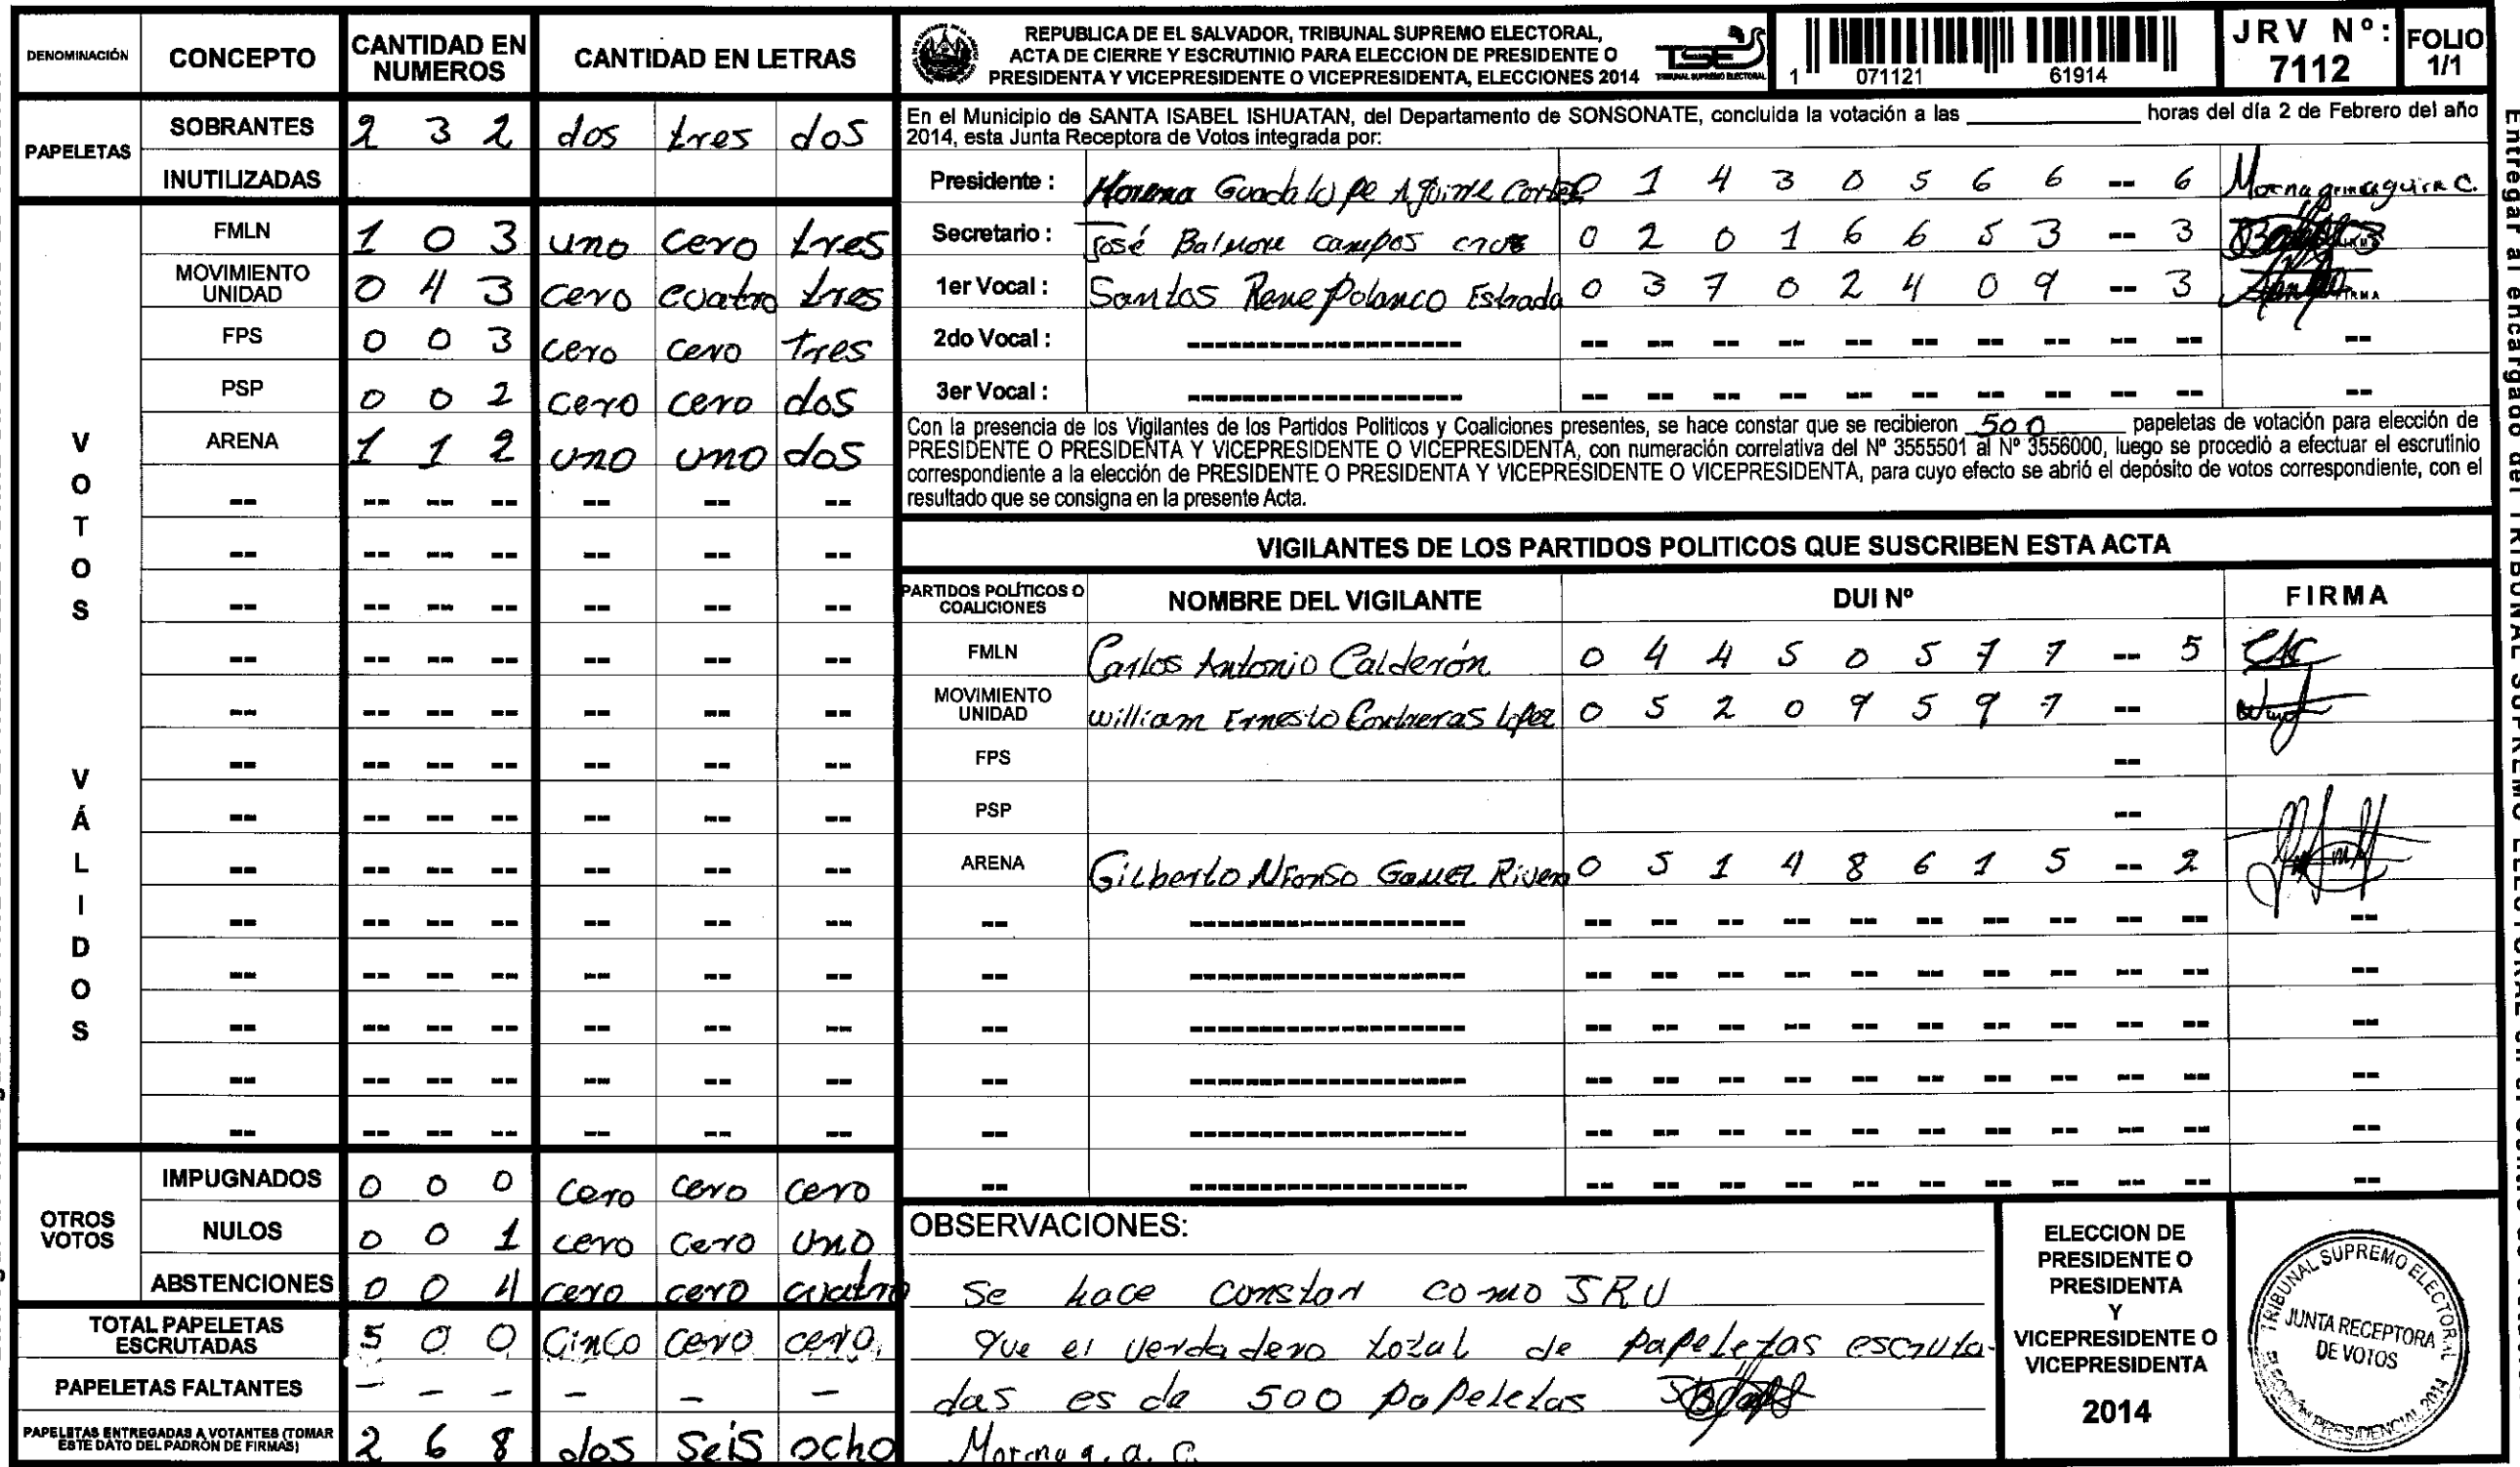 DENOMINACIÓN CONCEPTO CANTIDAD EN NUMEROS CANTIDAD EN LETRAS
PAPELETAS
SOBRANTES 2 3 2 dos tres dos
INUTILIZADAS
VOTOS VÁLIDOS
FMLN 1 0 3 uno cero tres
MOVIMIENTO UNIDAD 0 4 3 cero cuatro tres
FPS 0 0 3 cero cero tres
PSP 0 0 2 cero cero dos
ARENA 1 1 2 uno uno dos
OTROS VOTOS
IMPUGNADOS 0 0 0 cero cero cero
NULOS 0 0 1 cero cero uno
ABSTENCIONES 0 0 4 cero cero cuatro
TOTAL PAPELETAS ESCRUTADAS 5 0 0 Cinco cero cero
PAPELETAS FALTANTES - - - - - -
PAPELETAS ENTREGADAS A VOTANTES (TOMAR ESTE DATO DEL PADRÓN DE FIRMAS) 2 6 8 dos seis ocho
REPUBLICA DE EL SALVADOR, TRIBUNAL SUPREMO ELECTORAL,
ACTA DE CIERRE Y ESCRUTINIO PARA ELECCION DE PRESIDENTE O
PRESIDENTA Y VICEPRESIDENTE O VICEPRESIDENTA, ELECCIONES 2014
TSE
TRIBUNAL SUPREMO ELECTORAL
1 071121 61914
JRV Nº: 7112
FOLIO 1/1
En el Municipio de SANTA ISABEL ISHUATAN, del Departamento de SONSONATE, concluida la votación a las ____________ horas del día 2 de Febrero del año
2014, esta Junta Receptora de Votos integrada por:
Presidente : Morena Guadalupe Aguirre Cortez 0 1 4 3 0 5 6 6 -- 6
Secretario : José Balmore campos cruz 0 2 0 1 6 6 5 3 -- 3
1er Vocal : Santos Rene Polanco Estrada 0 3 7 0 2 4 0 9 -- 3
2do Vocal :
3er Vocal :
Con la presencia de los Vigilantes de los Partidos Politicos y Coaliciones presentes, se hace constar que se recibieron 500 papeletas de votación para elección de
PRESIDENTE O PRESIDENTA Y VICEPRESIDENTE O VICEPRESIDENTA, con numeración correlativa del Nº 3555501 al Nº 3556000, luego se procedió a efectuar el escrutinio
correspondiente a la elección de PRESIDENTE O PRESIDENTA Y VICEPRESIDENTE O VICEPRESIDENTA, para cuyo efecto se abrió el depósito de votos correspondiente, con el
resultado que se consigna en la presente Acta.
VIGILANTES DE LOS PARTIDOS POLITICOS QUE SUSCRIBEN ESTA ACTA
PARTIDOS POLÍTICOS O COALICIONES NOMBRE DEL VIGILANTE DUI Nº FIRMA
FMLN Carlos Antonio Calderón 0 4 4 5 0 5 7 7 -- 5
MOVIMIENTO UNIDAD William Ernesto Contreras Lopez 0 5 2 0 9 5 9 7 --
FPS --
PSP --
ARENA Gilberto Alfonso Gamez Rivera 0 5 1 4 8 6 1 5 -- 2
OBSERVACIONES:
Se hace constar como JRV
que el verdadero total de papeletas escruta-
das es de 500 papeletas
Morena g. a. C.
ELECCION DE
PRESIDENTE O
PRESIDENTA
Y
VICEPRESIDENTE O
VICEPRESIDENTA
2014
TRIBUNAL SUPREMO ELECTORAL
JUNTA RECEPTORA
DE VOTOS
ELECCIÓN PRESIDENCIAL 2014